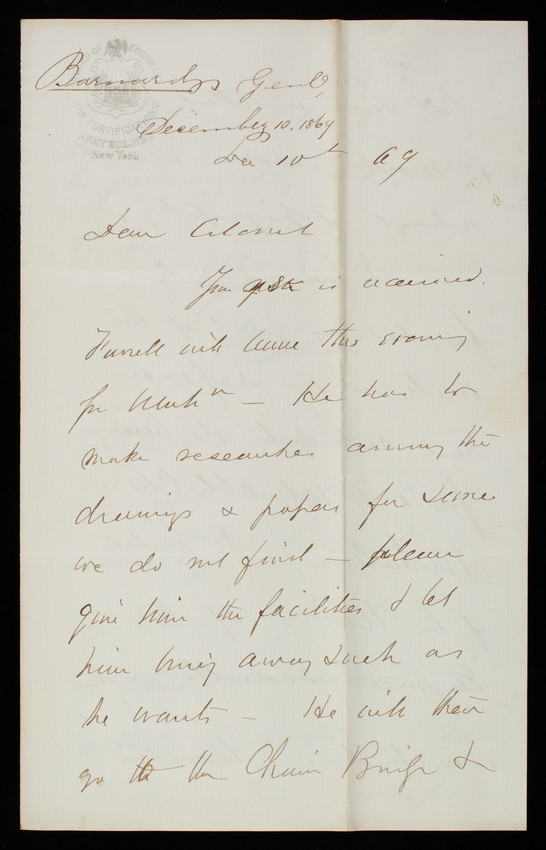 BOARD OF ENGINEERS
FOR FORTIFICATIONS
ARMY BUILDING
New York
Barnard, Genl,
December 10, 1869
Dec 10th 69
Dear Colonel
Your is received.
Farrell will leave this evening
for Washn — He has to
make researches among the
drawings & papers for some
we do not find — please
give him the facilities & let
him bring away such as
he wants — He will then
go to the Chain Bridge &